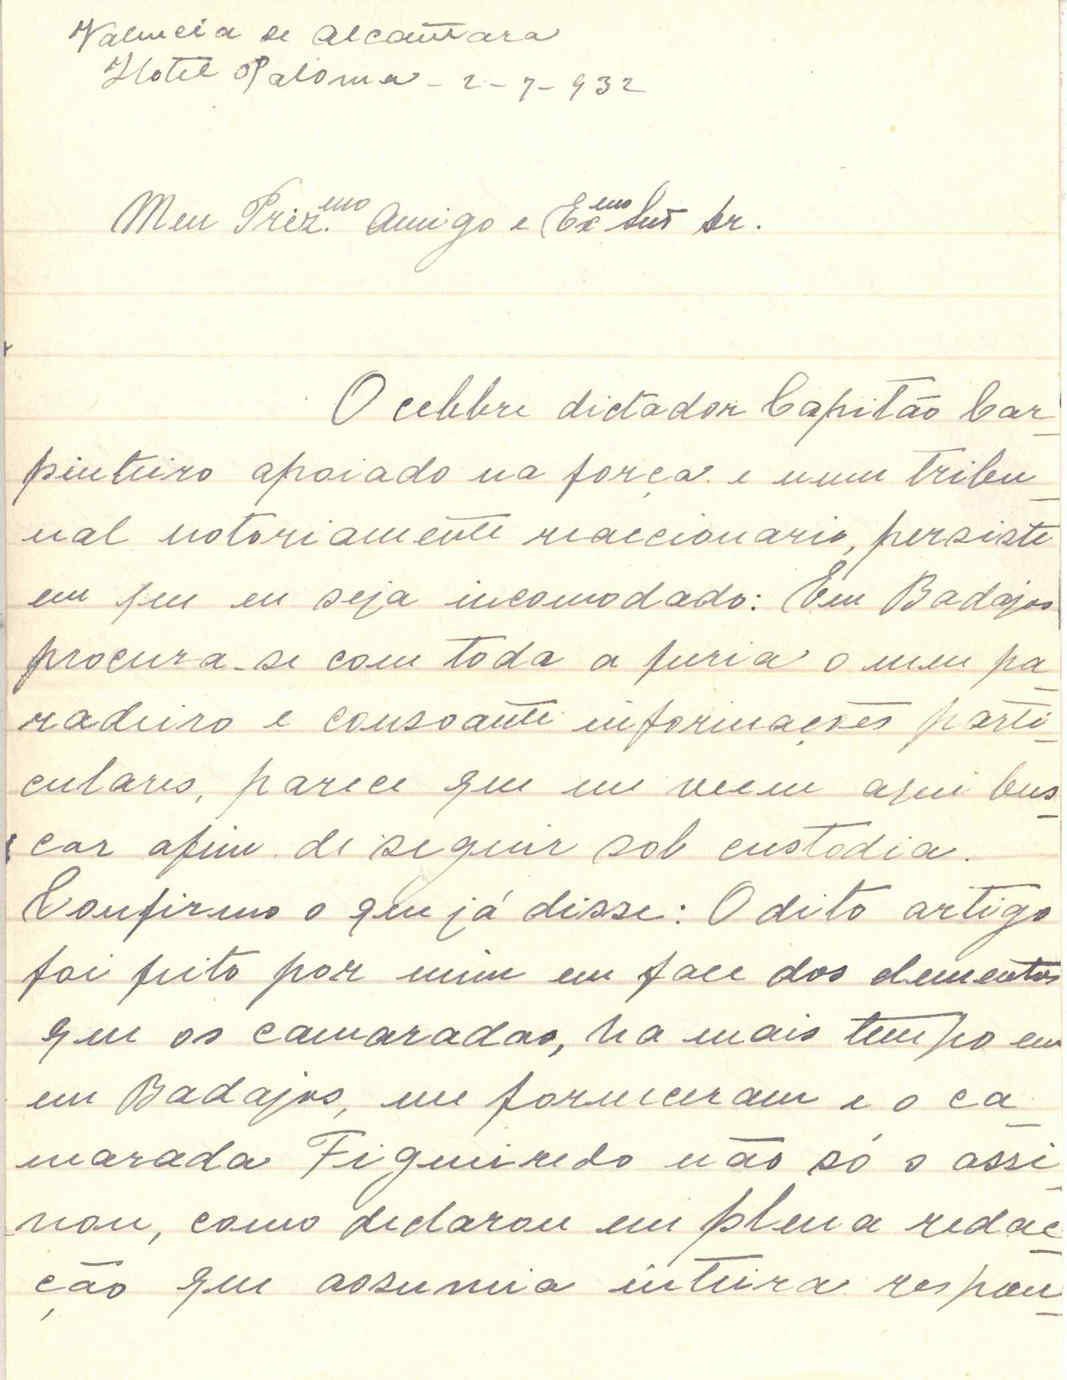 Valencia de Alcantara
Hotel Paloma - 2-7-932
Meu Prez.mo Amigo e Ex.mo Snr Dr.
O celebre dictador Capitão Car-
pinteiro apoiado na força e num tribu-
nal notoriamente reaccionario, persiste
em que eu seja incomodado: Em Badajos
procura-se com toda a furia o meu pa-
radeiro e consoante informações parti-
culares, parece que me veem aqui bus-
car afim de seguir sob custodia.
Confirmo o que já disse: O dito artigo
foi feito por mim em face dos elementos
que os camaradas, ha mais tempo em
em Badajos, me forneceram e o ca-
marada Figueiredo não só o assi-
nou, como declarou em plena redac-
ção que assumia inteira respon-